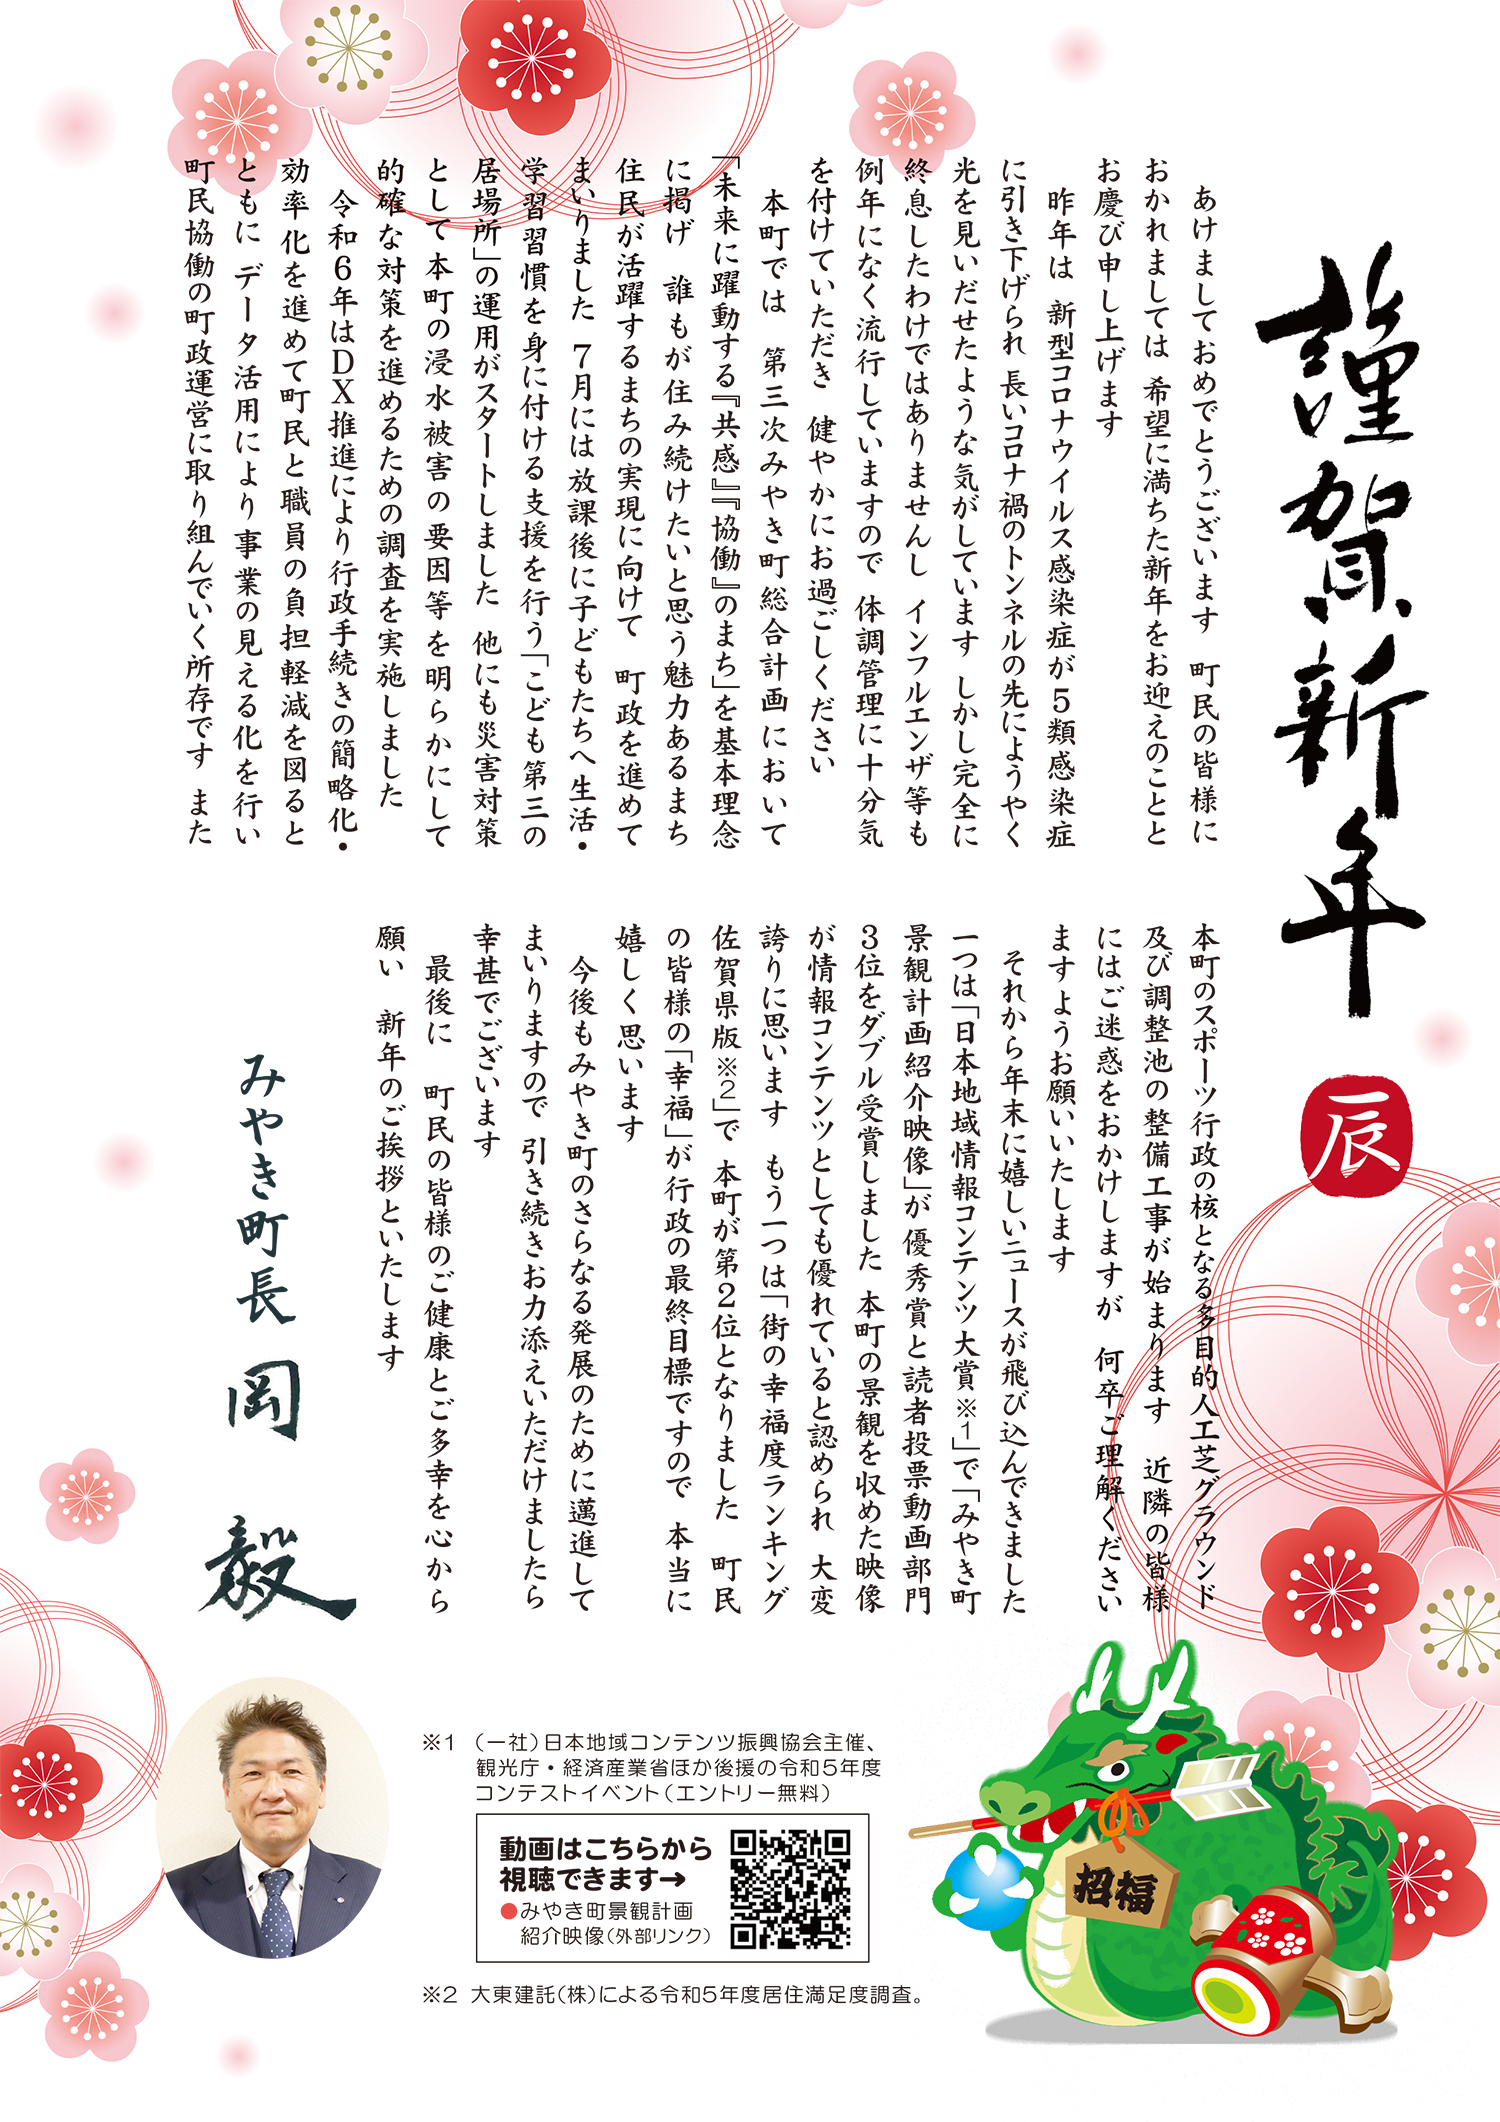 謹賀新年
辰
あけましておめでとうございます 町民の皆様に
おかれましては 希望に満ちた新年をお迎えのことと
お慶び申し上げます
昨年は 新型コロナウイルス感染症が５類感染症
に引き下げられ 長いコロナ禍のトンネルの先にようやく
光を見いだせたような気がしています しかし完全に
終息したわけではありませんし インフルエンザ等も
例年になく流行していますので 体調管理に十分気
を付けていただき 健やかにお過ごしください
本町では 第三次みやき町総合計画において
「未来に躍動する『共感』『協働』のまち」を基本理念
に掲げ 誰もが住み続けたいと思う魅力あるまち
住民が活躍するまちの実現に向けて 町政を進めて
まいりました ７月には放課後に子どもたちへ生活・
学習習慣を身に付ける支援を行う「こども第三の
居場所」の運用がスタートしました 他にも災害対策
として本町の浸水被害の要因等を明らかにして
的確な対策を進めるための調査を実施しました
令和６年はＤＸ推進により行政手続きの簡略化・
効率化を進めて町民と職員の負担軽減を図ると
ともに データ活用により事業の見える化を行い
町民協働の町政運営に取り組んでいく所存です また
本町のスポーツ行政の核となる多目的人工芝グラウンド
及び調整池の整備工事が始まります 近隣の皆様
にはご迷惑をおかけしますが 何卒ご理解ください
ますようお願いいたします
それから年末に嬉しいニュースが飛び込んできました
一つは「日本地域情報コンテンツ大賞※１」で「みやき町
景観計画紹介映像」が優秀賞と読者投票動画部門
３位をダブル受賞しました 本町の景観を収めた映像
が情報コンテンツとしても優れていると認められ 大変
誇りに思います もう一つは「街の幸福度ランキング
佐賀県版※２」で 本町が第２位となりました 町民
の皆様の「幸福」が行政の最終目標ですので 本当に
嬉しく思います
今後もみやき町のさらなる発展のために邁進して
まいりますので 引き続きお力添えいただけましたら
幸甚でございます
最後に 町民の皆様のご健康とご多幸を心から
願い 新年のご挨拶といたします
みやき町長 岡 毅
※1 （一社）日本地域コンテンツ振興協会主催、
観光庁・経済産業省ほか後援の令和5年度
コンテストイベント（エントリー無料）
動画はこちらから
視聴できます→
●みやき町景観計画
紹介映像（外部リンク）
※2 大東建託（株）による令和5年度居住満足度調査。
招福